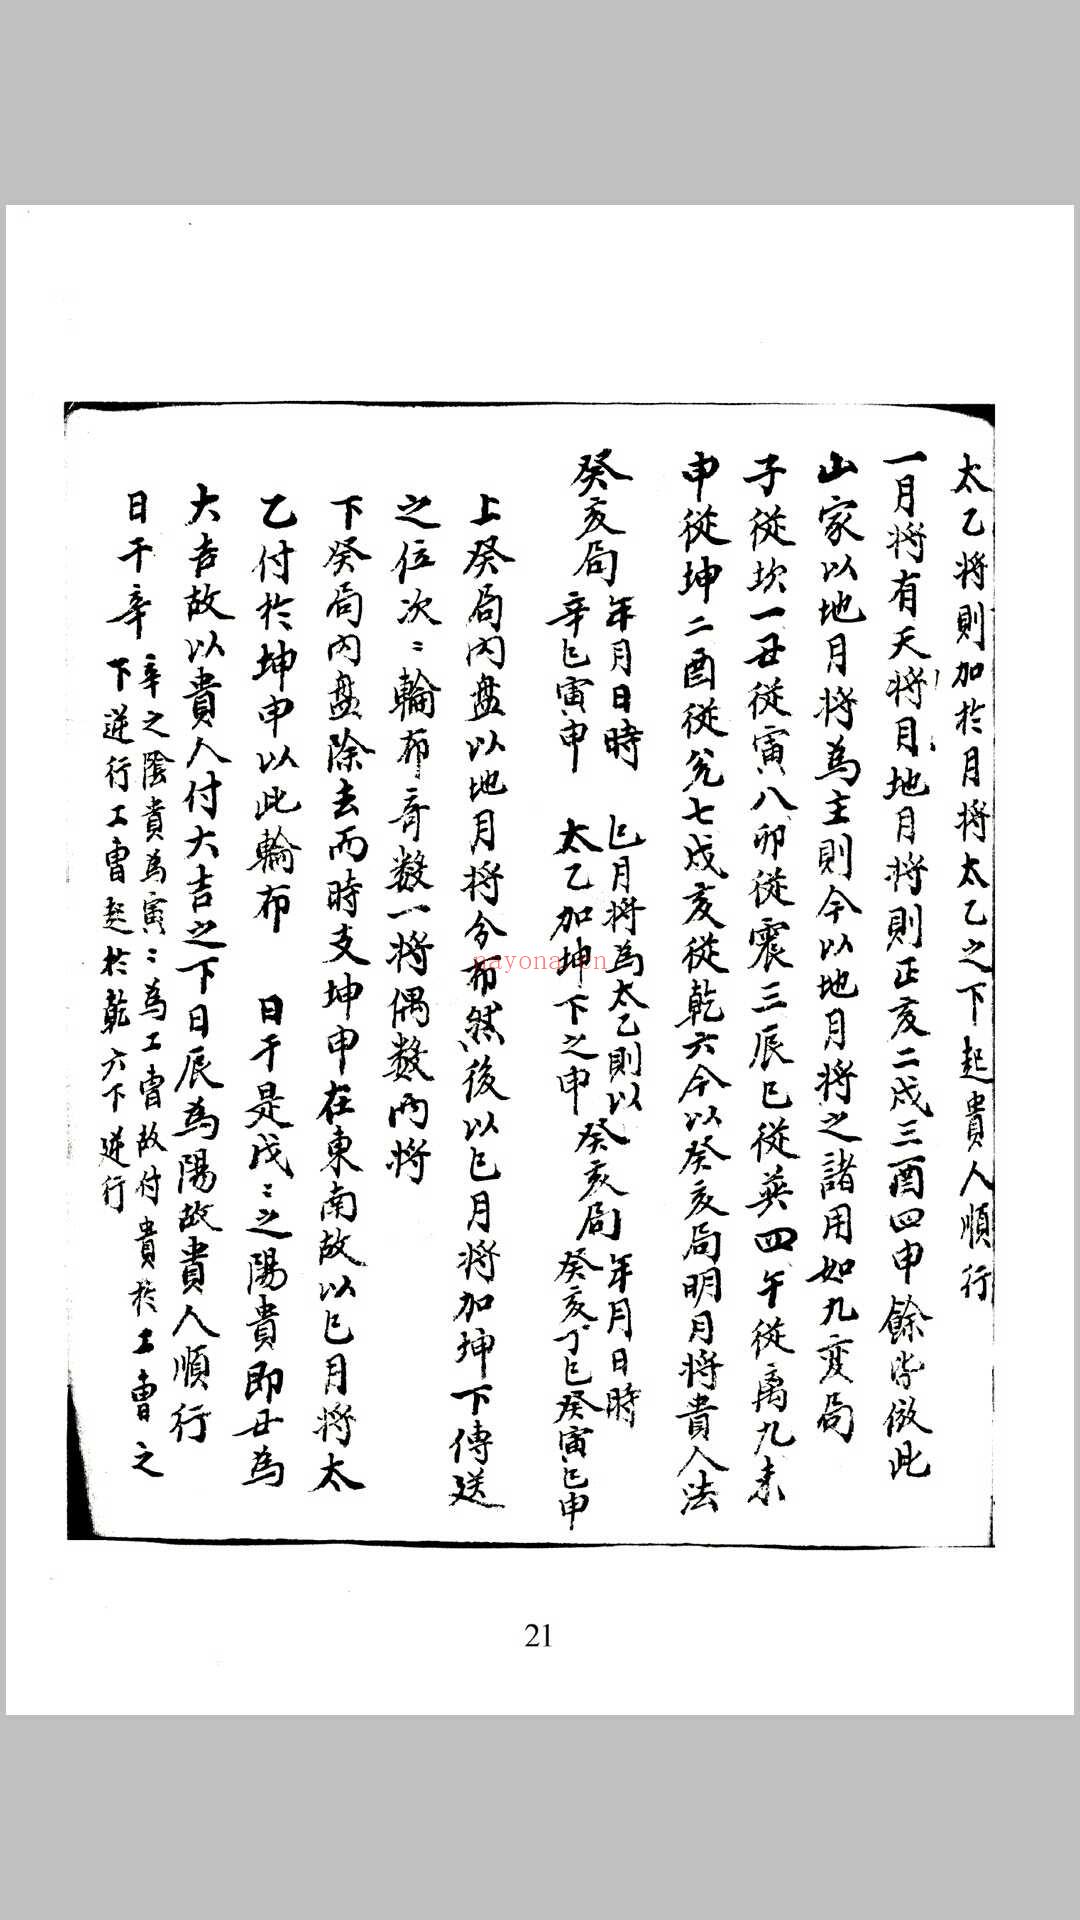 太乙将則加於月将太乙之下起貴人順行
一月将有天将月地月将則正亥二戌三酉四申餘皆倣此
山家以地月将為主則今以地月将之諸用如九变局
子從坎一丑從寅八卯從震三辰巳從英四午從离九未
申從坤二酉從兌七戌亥從乾六今以癸亥局明月将貴人法
癸亥局 年月日時 巳月将為太乙則以 癸亥局 年月日時
辛巳寅申 太乙加坤下之申 癸亥丁巳癸寅巳申
上癸局内盘以地月将分布然後以巳月将加坤下傳送
之位次〻輪布奇数一将偶数両将
下癸局内盘除去而時支坤申在東南故以巳月将太
乙付於坤申以此輪布 日干是戊〻之陽貴即丑為
大吉故以貴人付大吉之下日辰為陽故貴人順行
日干辛 辛之陰貴為寅〻為工曺故付貴於工曺之
下逆行工曺起於乾六下逆行
nayona.cn
21